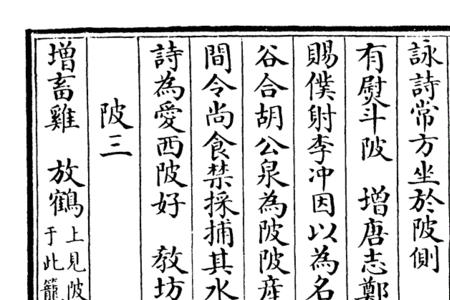 詠詩常方坐於陂側
有熨斗陂 增唐志鄭
賜僕射李冲因以為名
谷合胡公泉為陂陂產
間令尚食禁採捕其水
詩為愛西陂好 敎坊
陂三
增畜雞 放鶴上見陂
于此籠